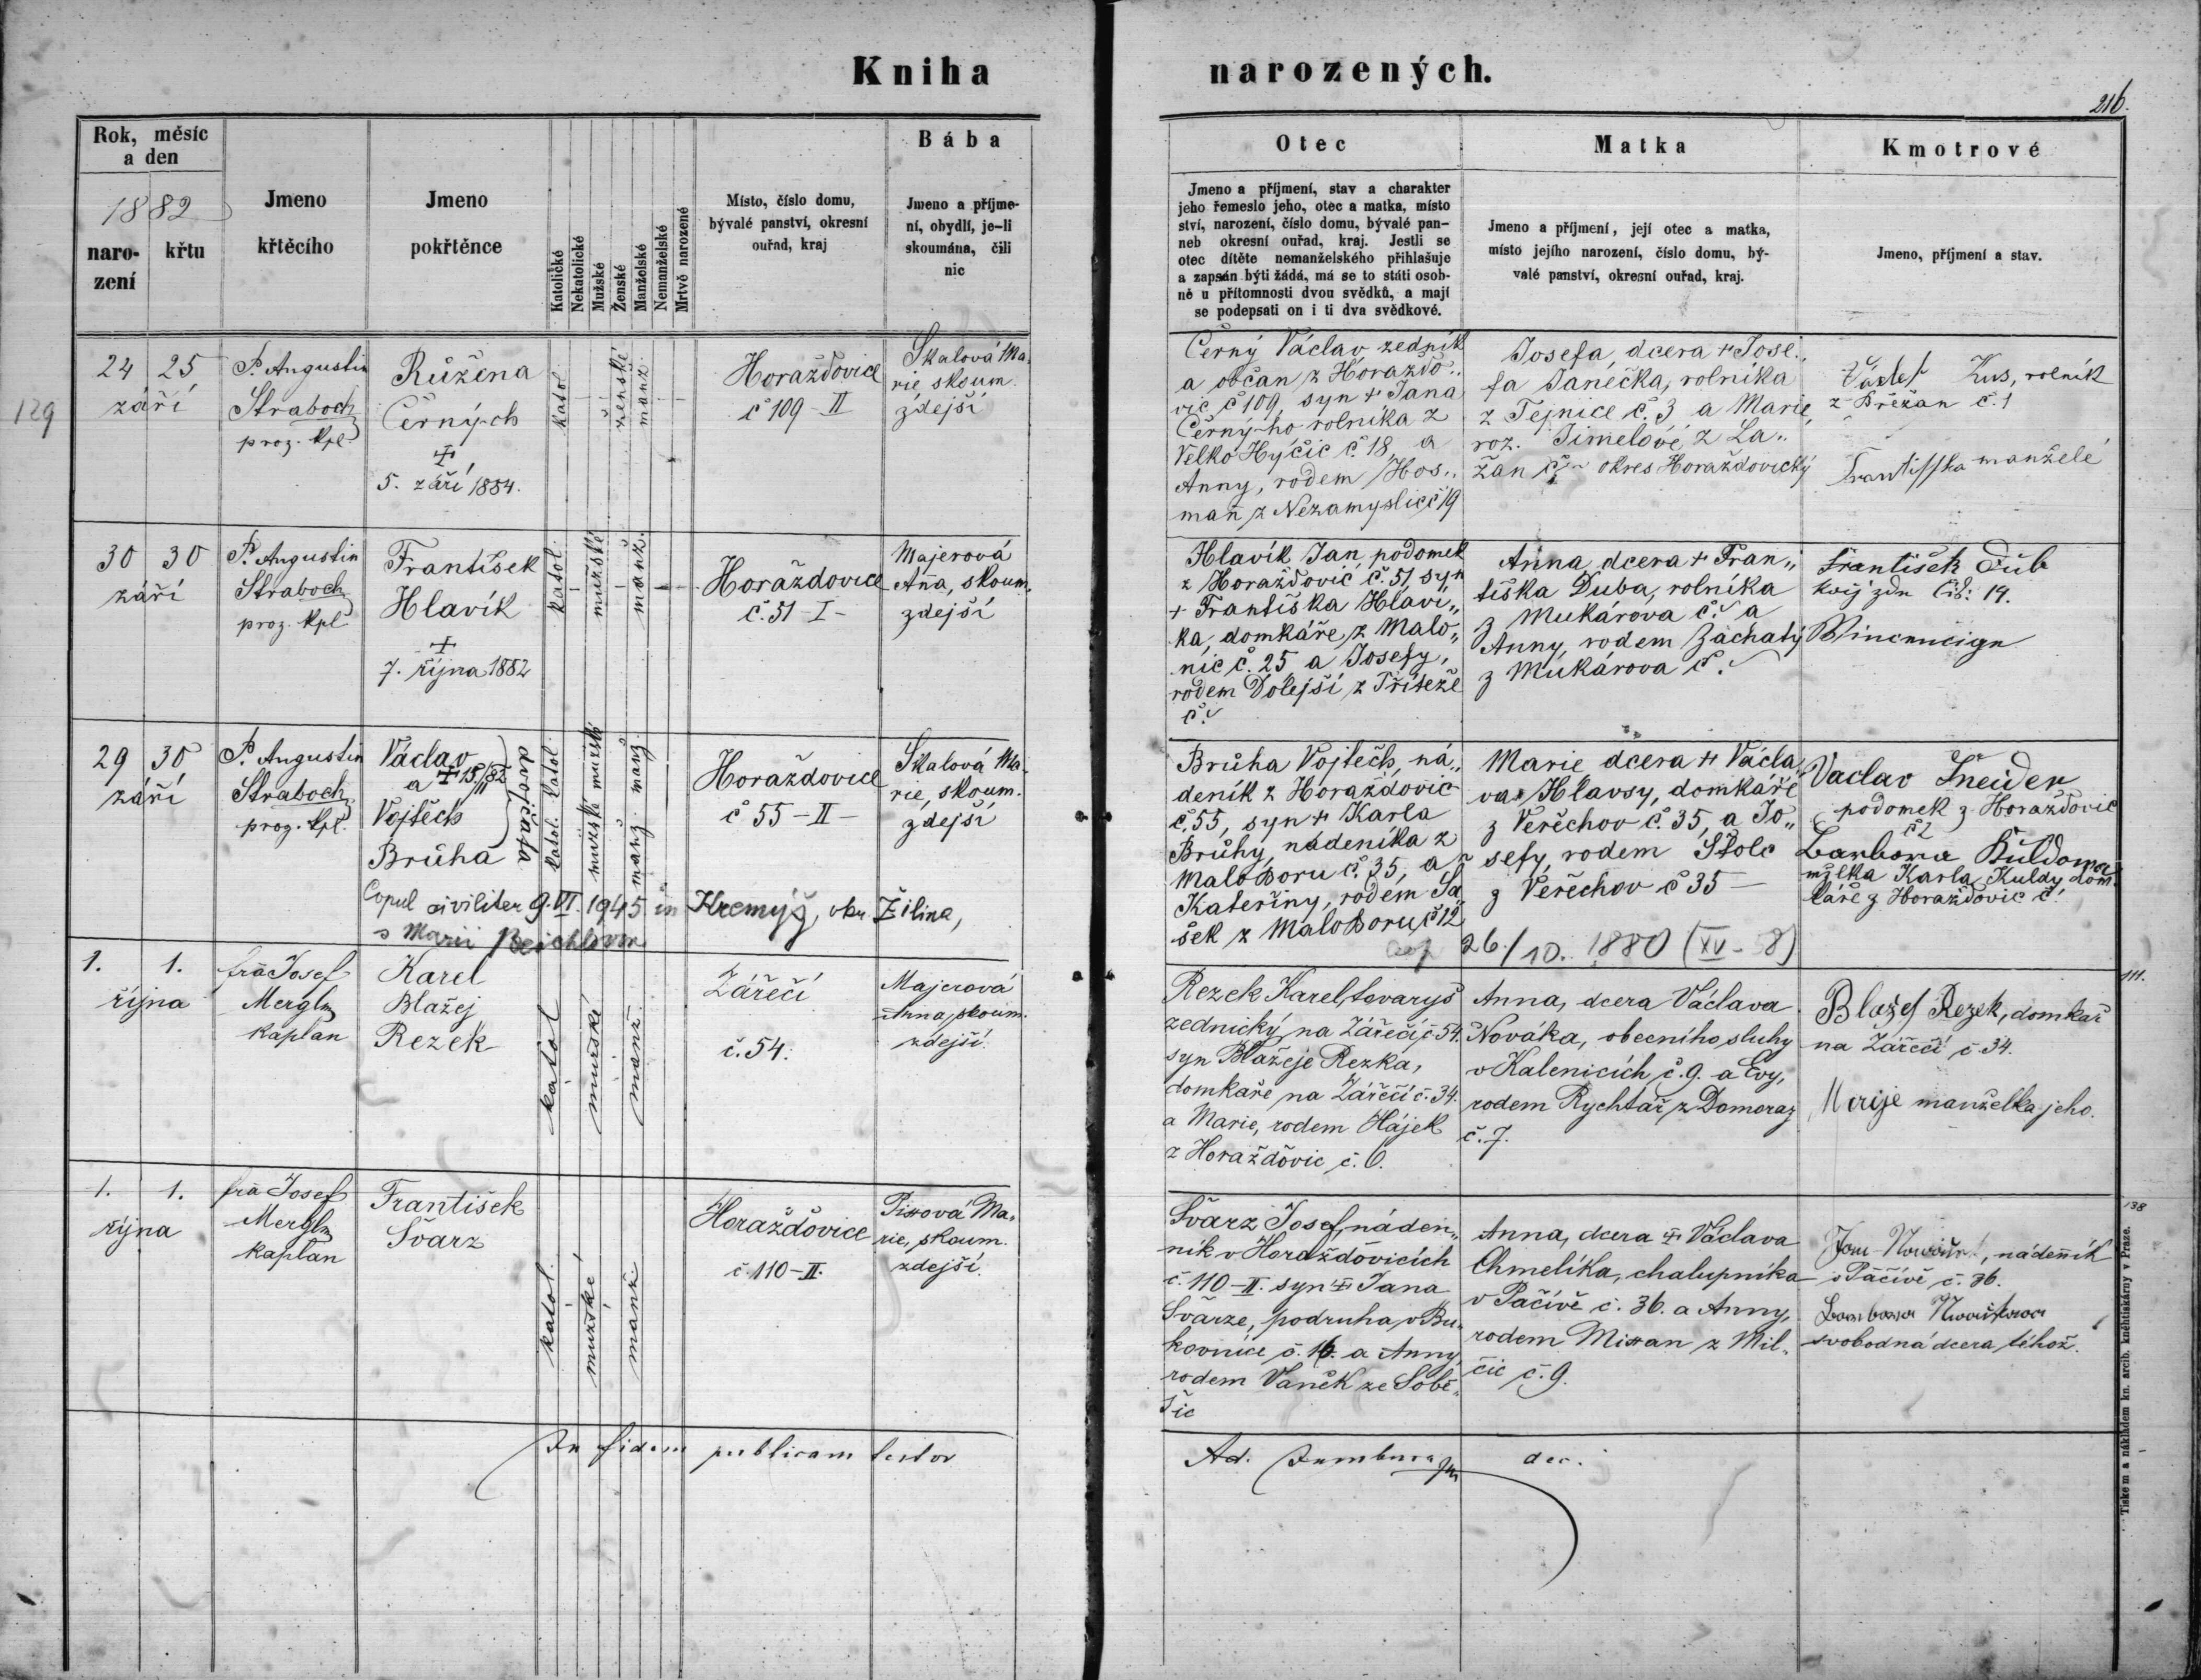 Kniha
narozených.
216.
Rok, měsíc
a den
1882
naro-
zení
křtu
Jmeno
křtěcího
Jmeno
pokřtěnce
Katolické
Nekatolické
Mužské
Ženské
Manželské
Nemanželské
Mrtvě narozené
Místo, číslo domu,
bývalé panství, okresní
ouřad, kraj
Bába
Jmeno a příjme-
ní, obydlí, je-li
skoumána, čili
nic
Otec
Jmeno a příjmení, stav a charakter
jeho řemeslo jeho, otec a matka, místo
ství, narození, číslo domu, bývalé pan-
neb okresní ouřad, kraj. Jestli se
otec dítěte nemanželského přihlašuje
a zapsán býti žádá, má se to státi osob-
ně u přítomnosti dvou svědků, a mají
se podepsati on i ti dva svědkové.
Matka
Jmeno a příjmení, její otec a matka,
místo jejího narození, číslo domu, bý-
valé panství, okresní ouřad, kraj.
Kmotrové
Jmeno, příjmení a stav.
129
24 25
září
P. Augustin
Straboch
proz. kpl
Růžena
Černých
+
5. září 1884.
katol.
ženské
manž.
Horažďovice
č 109 - II
Skalová Ma-
rie, skoum.
zdejší
Černý Václav zedník
a občan z Horažďo„
vic č 109, syn + Jana
Černýho rolníka z
Velko Hýčic č. 18, a
Anny, rodem Hos„
man̄ z Nezamyslic č 19
Josefa, dcera + Jose„
fa Janéčka, rolníka
z Tejnice č. 3 a Marie,
roz. Jimelové z La„
žan č. okres Horažďovický
Kus, rolník
z Břežan č. 1
Frantisska manželé
30 30
září
P. Augustin
Straboch
proz. kpl
František
Hlavík
+
7. října 1882
katol.
mužské
manž.
Horažďovice
č. 51 - I -
Majerová
An̄a, skoum.
zdejší
Hlavík Jan, podomek
z Horažďovic č. 51, syn
+ Františka Hlaví„
ka, domkáře z Malo„
nic č. 25 a Josefy,
rodem Dolejší z Třiteže
č.
Anna, dcera + Fran„
tiška Duba, rolníka
z Mukárova č. a
Anny, rodem Zachatý
z Mukárova č.
František Dub
19.
29 30
září
P. Augustin
Straboch
proz. kpl.
Václav
a + 15/II 82
Vojtěch
Brůha
dvojčata
katol. katol.
mužské mužské
manž. manž.
Horažďovice
č 55 - II -
Skalová Ma-
rie, skoum.
zdejší
Copul civiliter 9. VI. 1945 in Kremyž, okr. Žilina,
s Marii Reichlovou
Brůha Vojtěch, ná„
deník z Horažďovic
č. 55, syn + Karla
Brůhy, nádeníka z
Malo Boru č. 35, a
Kateřiny, rodem Sa„
šek z Malo Boru, č 12
Marie dcera + Václa
va Hlavsy, domkáře
z Veřechov č. 35, a Jo„
sefy, rodem Štolc
z Veřechov č 35 —
cop 26/10. 1880 (XV - 58)
Vaclav Šneider
podomek z Horažďovic
č 2
Barbora Kuldova
mžlka Karla Kuldy dom
káře z Horažďovic č.
1. 1.
října
frā Josef
Mergl
kaplan
Karel
Blažej
Rezek
katol
mužské
manž.
Zářečí
č. 54.
Majerová
Anna, skoum.
zdejší.
Rezek Karel, tovaryš
zednický na Zářečí č. 54.
syn Blažeje Rezka,
domkaře na Zářečí č. 34.
a Marie, rodem Hájek
z Horažďovic č. 6.
Anna, dcera Václava
Nováka, obecního sluhy
v Kalenicích č. 9. a Evy,
rodem Rychtář z Domoraz
č. 7.
111.
Blažej Rezek, domkař
na Zářečí č. 34.
Marije manželka jeho.
1. 1.
října
frā Josef
Mergl
kaplan
František
Švarz
katol.
mužské
manž.
Horažďovice
č. 110 - II.
Pixová Ma-
rie, skoum.
zdejší.
Švarz Josef, náden„
ník v Horažďovicích
č. 110 - II. syn + Jana
Švarze, podruha v Bu„
kovníce č. 16. a Anny,
rodem Vaněk ze Sobě„
šic
Anna, dcera + Václava
Chmelíka, chalupníka
v Pačívě č. 36. a Anny,
rodem Mixan z Mil„
čic č. 9.
138
nádenník
v Páčivě č. 36.
Barbora
svobodná dcera téhož.
In fidem publicam testor
Ad. dec.
Tiskem a nákladem kn. arcib. kněhtiskárny v Praze.